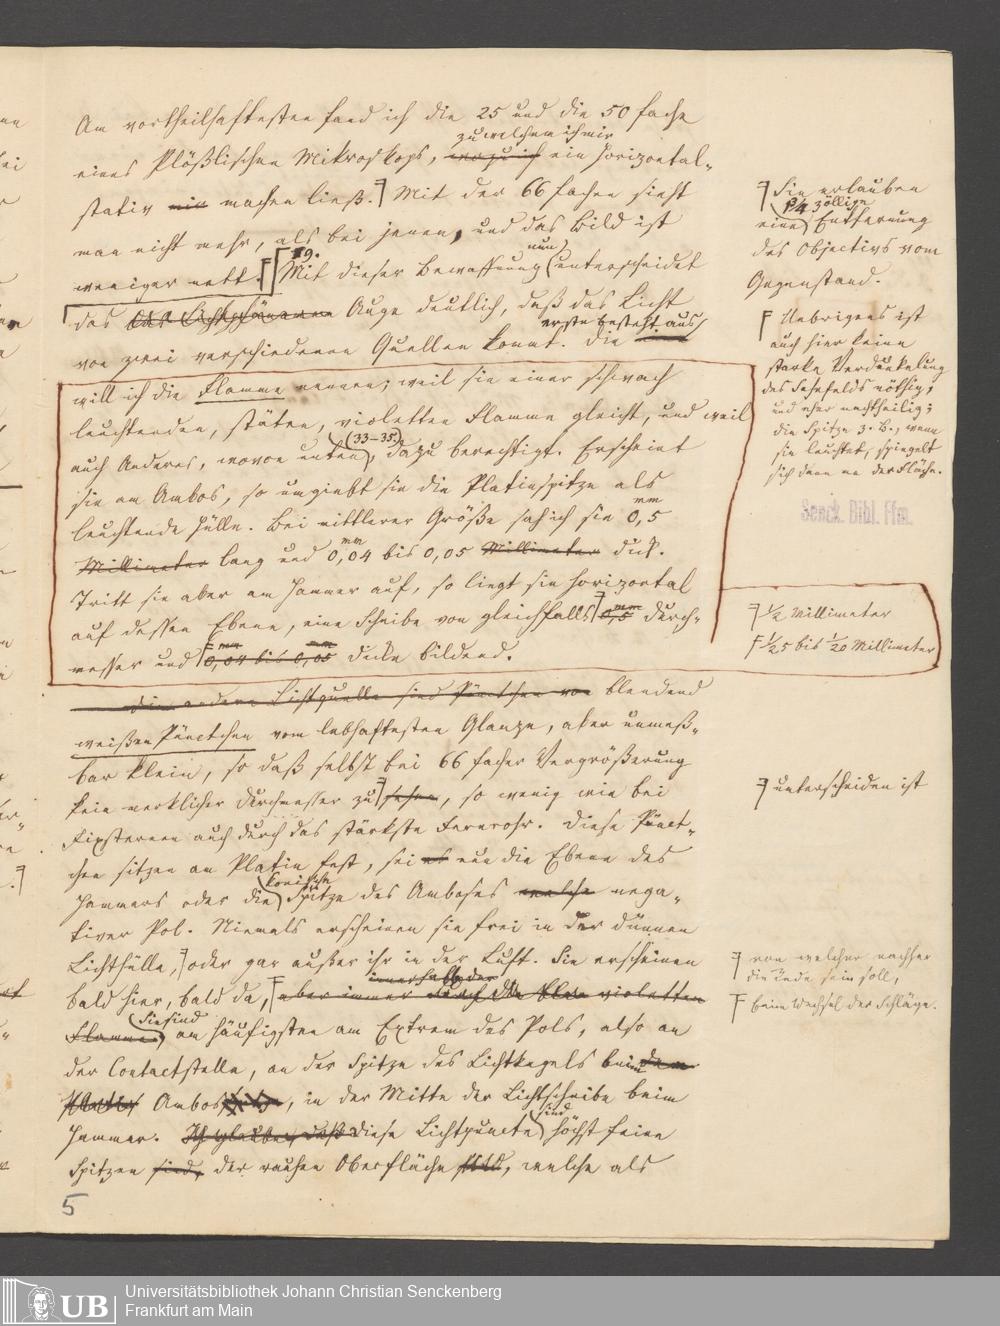 Am vortheilhaftesten fand ich die 25 und die 50 fache
zu welchem ich mir
eines Plößlischen Mikroskops, wozu ich ein Horizontal-
stativ mir machen ließ. Mit der 66 fachen sieht
man nicht mehr, als bei jenen, und das Bild ist
weniger nett. 19. Mit dieser Bewaffnung nun unterscheidet
das Auge deutlich, daß das Licht
von zwei verschiedenen Quellen kommt. Die erste besteht aus
will ich die Flamme nennen; weil sie einer schwach
leuchtenden, stäten, violetten Flamme gleicht, und weil
auch Anderes, wovon unten (33–35), dazu berechtigt. Erscheint
sie am Ambos, so umgiebt sie die Platinspitze als
leuchtende Hülle. Bei mittlerer Größe sah ich sie 0,5 mm
Millimeter lang und 0,04 mm bis 0,05 Millimeter dick.
Tritt sie aber am Hammer auf, so liegt sie horizontal
auf dessen Ebene, eine Scheibe von gleichfalls 0,5 mm Durch-
messer und 0,04 mm bis 0,05 mm Dicke bildend.
die andere Lichtquelle sind Pünctchen von blendend
weißen Pünctchen vom lebhaftesten Glanze, aber unmeß-
bar klein, so daß selbst bei 66 facher Vergrößerung
kein merklicher Durchmesser zu sehen, so wenig wie bei
Fixsternen auch durch das stärkste Fernrohr. Diese Pünct-
chen sitzen am Platin fest, sei es nun die Ebene des
Hammers oder die konische Spitze des Amboses welche nega-
tiver Pol. Niemals erscheinen sie frei in der dünnen
Lichthülle, oder gar außer ihr in der Luft. Sie erscheinen
innerhalb der
bald hier, bald da, aber immer durch die violetten
Flamme, Sie sind am häufigsten am Extrem des Pols, also an
der Contactstelle, an der Spitze des Lichtkegels beim
Ambos, in der Mitte der Lichtscheibe beim
Hammer. Ich glaube, daß diese Lichtpuncte sind höchst feine
Spitzen sind, der rauhen Oberfläche sind, welche als
5
Sie erlauben
eine 3/4 zöllige Entfernung
des Objectivs vom
Gegenstand.
Uebrigens ist
auch hier keine
starke Verdunkelung
des Sehfelds nöthig,
und eher nachtheilig;
die Spitze z. B., wenn
sie leuchtet, spiegelt
sich dann an der Fläche.
Senck. Bibl. Ffm.
1/2 Millimeter
1/25 bis 1/20 Millimeter
unterscheiden ist
von welcher nachher
die Rede sein soll,
beim Wechsel der Schläge.
UB
Universitätsbibliothek Johann Christian Senckenberg
Frankfurt am Main